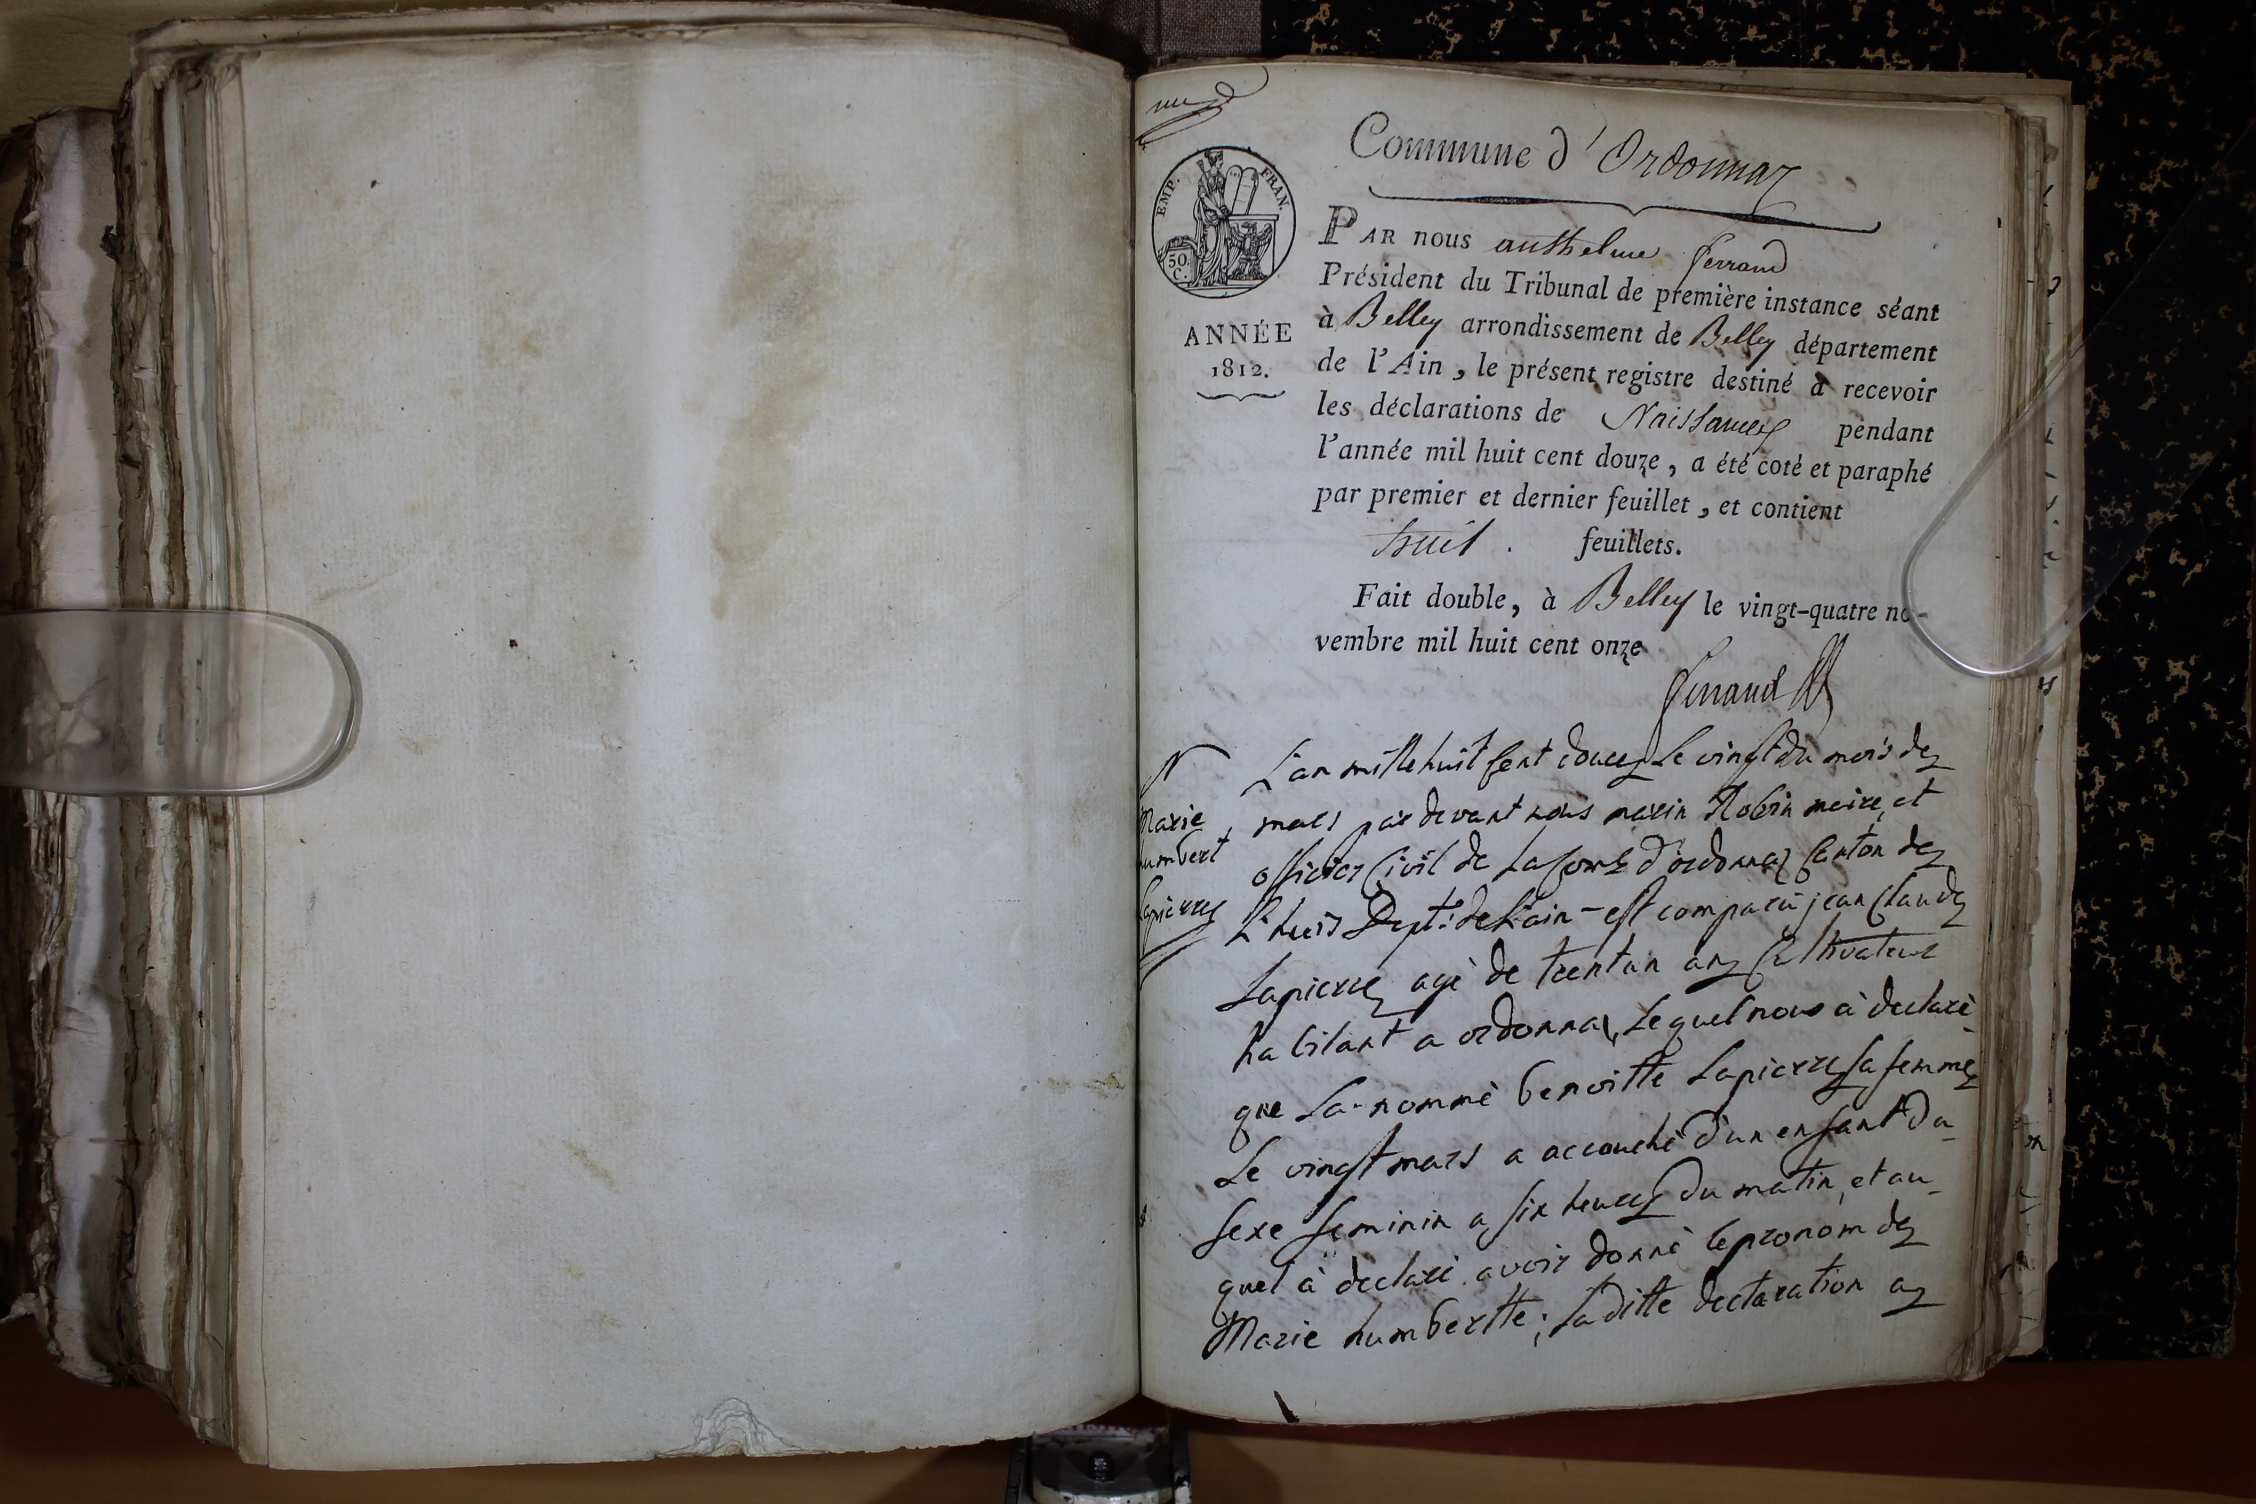 Commune d'Ordonnaz
EMP. FRAN.
50.
C.
ANNÉE
1812.
PAR nous anthelme ferrand
Président du Tribunal de première instance séant
à Belley arrondissement de Belley département
de l'Ain, le présent registre destiné à recevoir
les déclarations de Naissances pendant
l'année mil huit cent douze, a été coté et paraphé
par premier et dernier feuillet, et contient
huit . feuillets.
Fait double, à Belley le vingt-quatre no-
vembre mil huit cent onze
ferrand
N
Marie
humbert
Lapierre
L'an mille huit sent douce Le vingt du mois de
mars par devant nous marin Robin maire, et
officier Civil de La Com.e d'ordonnaz Canton de
L'huis Dept. de L'ain - est comparu jean Claude
Lapierre agé de trentun ans Cultivateur
habitant a ordonnaz, Lequel nous à declaré
que La-nommé benoitte Lapierre sa femme
Le vingt mars a accouché d'un enfant du-
sexe feminin a six heures du matin, et au-
quel à declaré avoir donné le pronom de
Marie humbertte; La ditte declaration a